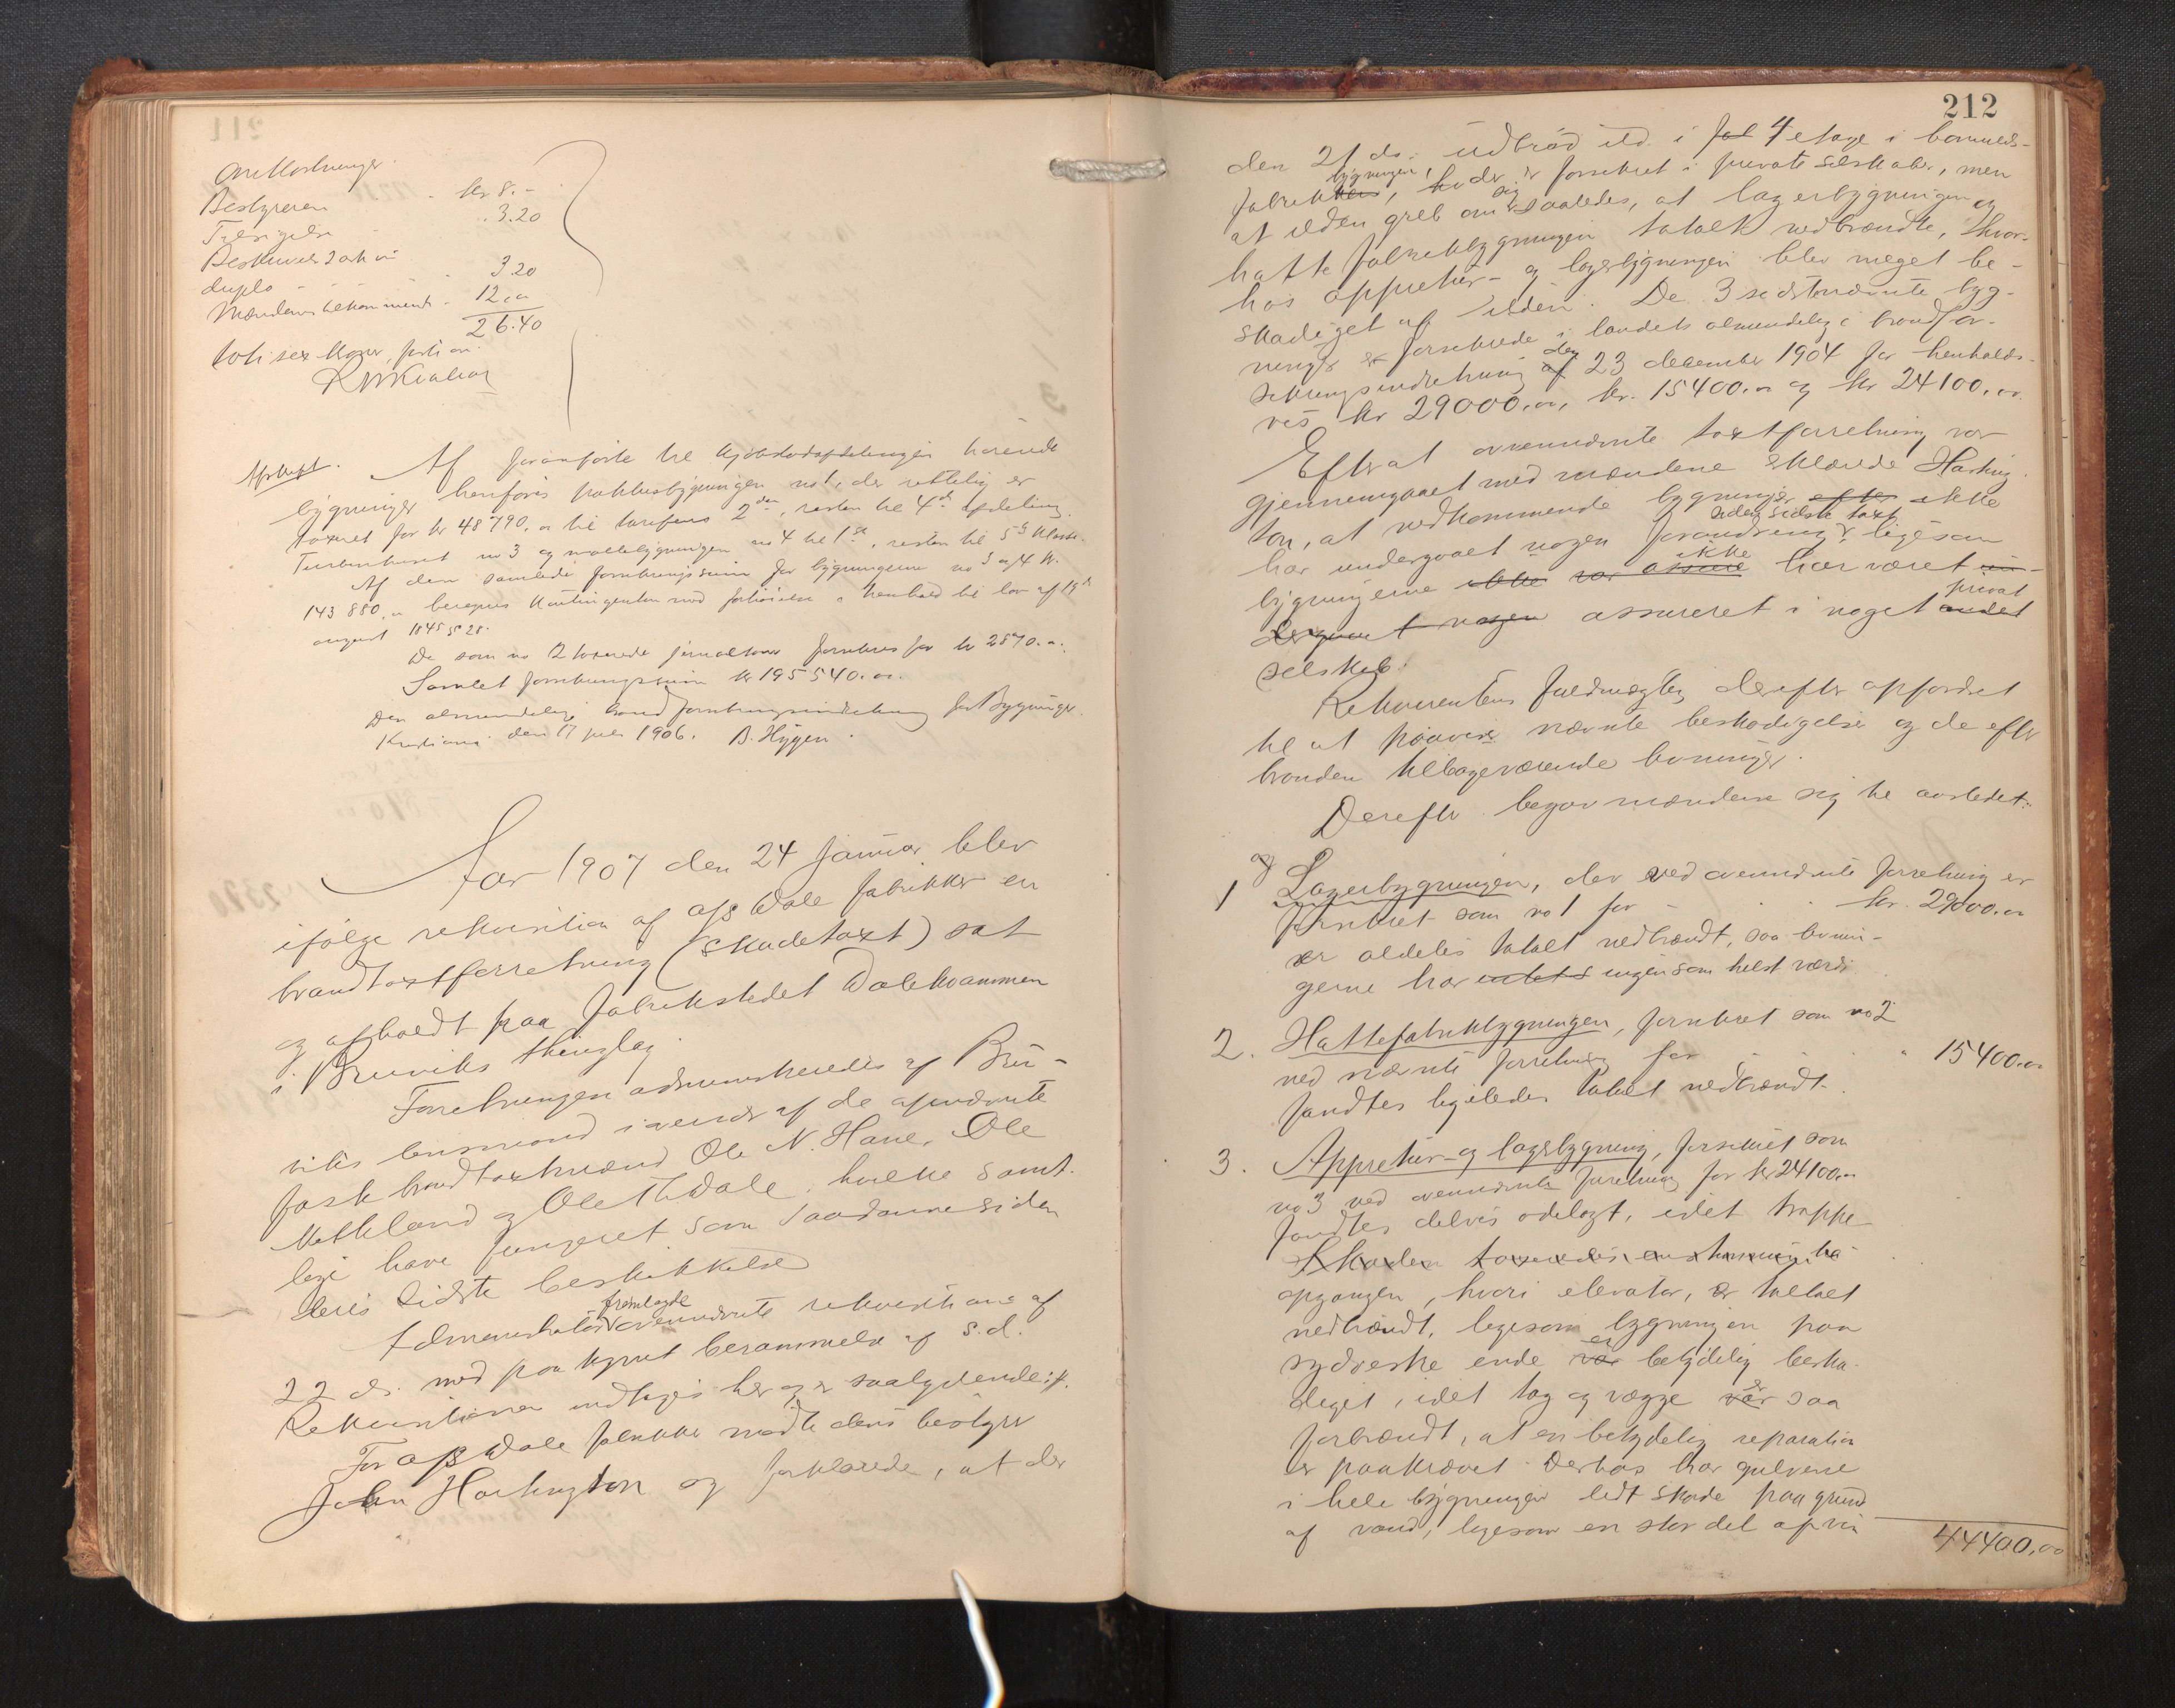 Omkostninger.
Bestyreren kr 8.-
Tilsigelse 3.20
Beskrivelse 2 ark in
duplo - 3.20
Mændenes tilkommende - 12.00
26.40
toti sex kroner, forti øre.

Afskrift. Af foranførte til kjøbstadafdelingen hørende
bygninger henføres pakhusbygningen no 1, der rettelig er
taxeret for kr 48790.00 til tarifens 2den, resten til 4de afdeling.
Turbinhuset no 3 og møllebygningen no 4 til 1ste, resten til 5te klasse.
Af den samlede forsikringssum for bygningerne no 3 og 4 kr.
143 880.00 beregnes kontingenten med forhøielse i henhold til lov af 19de
august 1845 § 28.
De som no 2 taxerede forsikres for kr 2870.00.
Samlet forsikringssum kr 195540.00.
Den almindelige brandforsikringsindretning for Bygninger.
Kristiania den 17 juli 1906. B. Hygen.

Aar 1907 den 24 januar blev
ifølge rekvisition af a/s Dale fabrikker en
brandtaxtforretning (skadetaxt) sat
og afholdt paa fabrikstedet Dalekvammen
i Bruviks thinglag.
Forretningen administreredes af Bru-
viks lensmand i nærvær af de opnævnte
faste brandtaxtmænd Ole N. Hane, Ole
Helleland og Ole Th. Dale, hvilke samt-
lige have fungeret som saadanne siden
deres sidste beskikkelse
Administrator fremlagde ovennævnte rekvisition af
22 ds. med paategnet berammelse af s.d.
Rekvisitionen indtages her og er saalydende:
For a/s Dale fabrikker mødte dens bestyrer
John Harlington og forklarede, at der

212
den 21 ds. udbrød ild i fab 4 etage i bomulds-
fabrikkens bygningen, der er forsikret i private selskaber, men
at ilden greb om sig saaledes, at lagerbygningen og
hattefabrikbygningen totalt nedbrændte, hvor-
hos appretur- og lagerbygningen blev meget be-
skadiget af ilden. De 3 sidstnævnte byg-
ninger er forsikrede i landets almindelige brandfor-
sikringsindretning af den 23 december 1904 for henholds-
vis kr 29000.00, kr. 15400.00 og kr 24100.00.
Efter at ovennævnte taxtforretning var
gjennemgaaet med mændene erklærede Harling-
ton, at vedkommende bygninger efter ikke
har undergaaet nogen forandring siden sidste taxt, ligesom
bygningerne ikke var assure ikke har været
assureret i noget andet privat
selskab.
Rekvirentens fuldmægtig derefter opfordret
til at paavise nævnte beskadigelse og de efter
branden tilbageværende levninger.
Derefter begav mændene sig til aastedet:
og
1 Lagerbygningen, der ved ovennævnte forretning er
forsikret som no 1 for - kr. 29000.00
er aldeles totalt nedbrændt, saa levnin-
gerne har intets ingen som helst værdi.
2. Hattefabrikbygningen, forsikret som no 2
ved nævnte forretning for " 15400.00
fandtes ligeledes totalt nedbrændt.
3. Appretur- og lagerbygning, forsikret som
no 3 ved ovennævnte forretning for kr 24100.00
fandtes delvis ødelagt, idet trappe-
Skaden taxeredes
opgangen, hvori elevator, er totalt
nedbrændt, ligesom bygningen paa
sydvestre ende var er betydelig beska-
diget, idet tag og vægge var er saa
forbrændt, at en betydelig reparation
er paakrævet. Derhos har gulvene
i hele bygningen lidt skade paa grund
af vand, ligesom en stor del af vin
44400,00